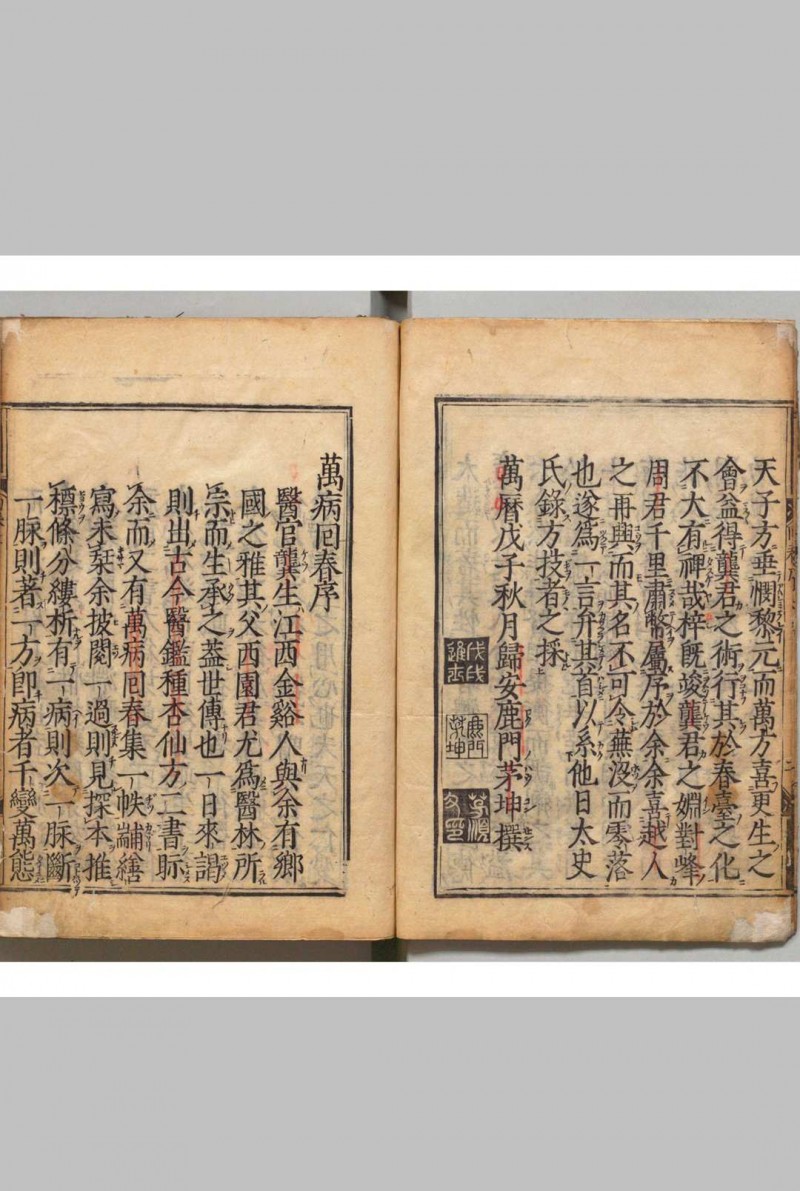 天子方垂憫黎元而萬方喜更生之
會益得龔君之術行其於春臺之化
不大有裨哉梓既竣龔君之婣對峰
周君千里肅幣屬序於余余喜越人
之再興而其名不可令蕪没而零落
也遂為一言弁其首以系他日太史
氏錄方技者之採
萬曆戊子秋月歸安鹿門茅坤撰
戊戌進士
鹿門茅坤
萬病回春序
醫官龔生江西金谿人與余有鄉
國之雅其父西園君尤為醫林所
宗而生承之蓋世傳也一日來謁
則出古今醫鑑種杏仙方二書眎
余而又有萬病回春集一帙耑補繕
寫未棻余披閱一過則見探本推
標條分縷析有一病則次一脉斷
一脉則著一方即病者千變萬態